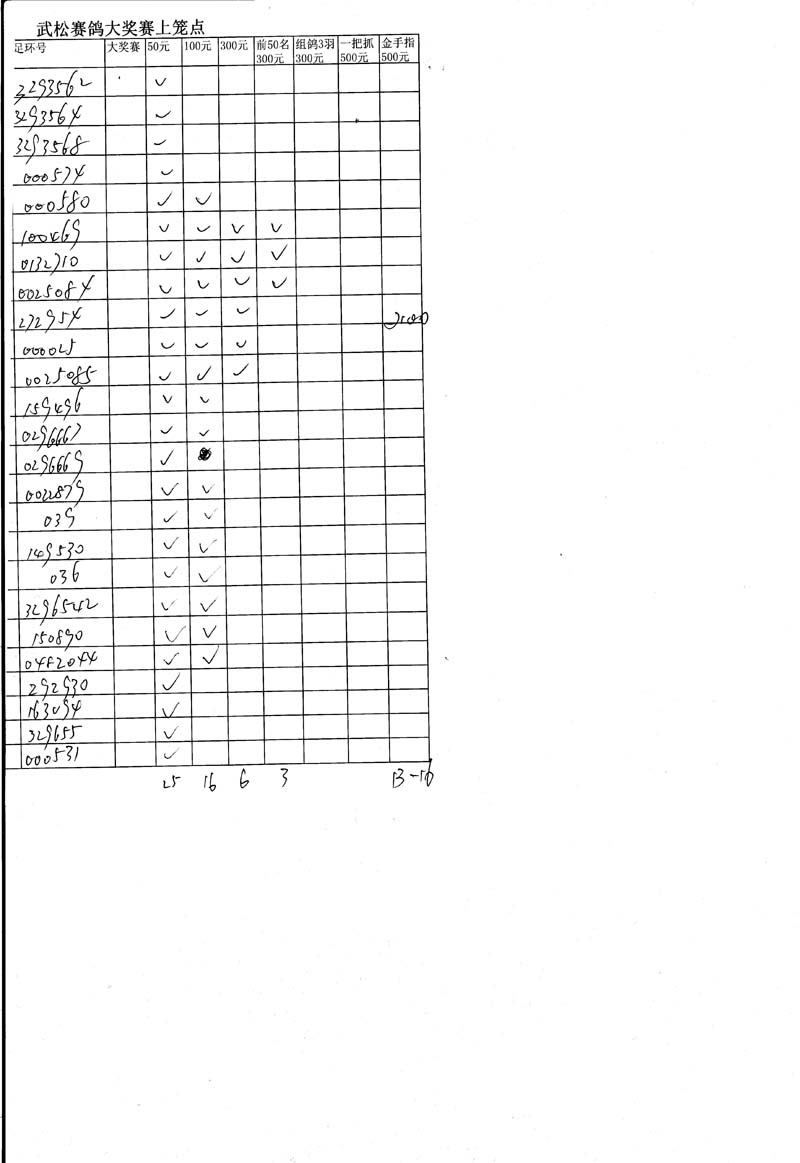 武松赛鸽大奖赛上笼点
足环号 大奖赛 50元 100元 300元 前50名300元 组鸽3羽300元 一把抓500元 金手指500元
3293562 ✓
3293564 ✓
3293568 ✓
000574 ✓
000580 ✓ ✓
100469 ✓ ✓ ✓ ✓
0132710 ✓ ✓ ✓ ✓
0025084 ✓ ✓ ✓ ✓
272954 ✓ ✓ ✓
000025 ✓ ✓ ✓
0025085 ✓ ✓ ✓
159496 ✓ ✓
0296667 ✓ ✓
0296669 ✓
0022879 ✓ ✓
039 ✓ ✓
149530 ✓ ✓
036 ✓ ✓
3296542 ✓ ✓
150890 ✓ ✓
0482044 ✓ ✓
292930 ✓
163094 ✓
329655 ✓
000531 ✓
25 16 6 3 13-16